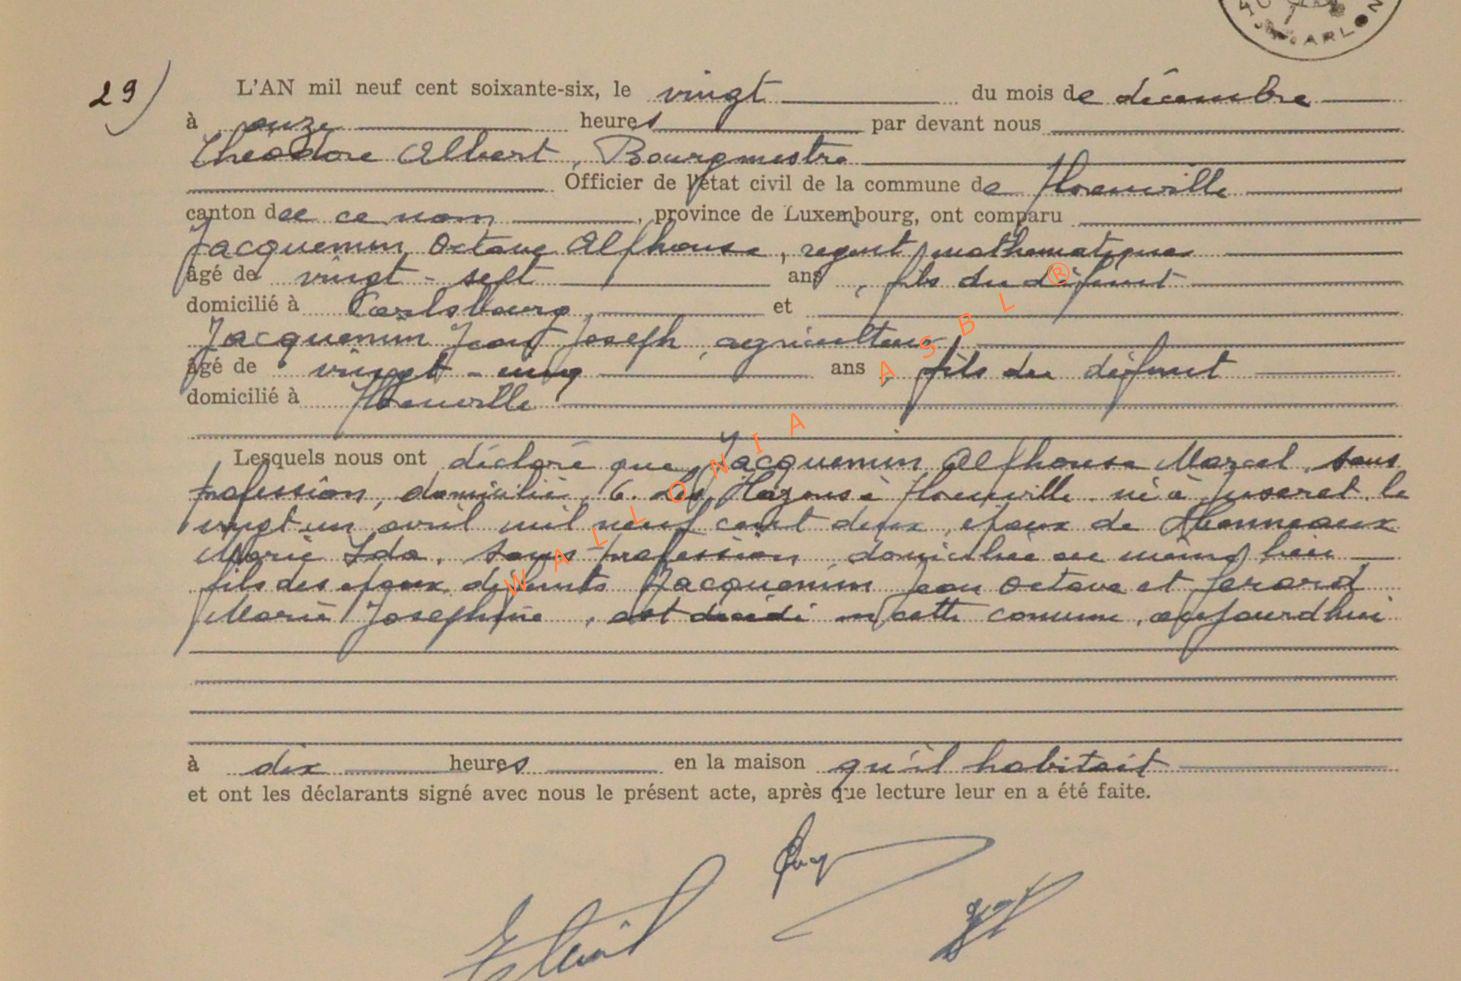 ARLON
29) L'AN mil neuf cent soixante-six, le vingt du mois de décembre
à onze heures par devant nous
Théodore Albert, Bourgmestre
Officier de l'état civil de la commune de Florenville
canton de ce nom, province de Luxembourg, ont comparu
Jacquemin Octave Alphonse, régent mathématiques
âgé de vingt-sept ans, fils du défunt
domicilié à Carlsbourg et
Jacquemin Jean Joseph, agriculteur
âgé de vingt-cinq ans, fils du défunt
domicilié à Florenville
Lesquels nous ont déclaré que Jacquemin Alphonse Marcel, sans
profession, domicilié, 6. des Hazons à Florenville né à Juseret, le
vingt un avril mil neuf cent deux, époux de Lhonneaux
Marie Ida, sans profession domiciliée au même lieu
fils des époux défunts Jacquemin Jean Octave et Gerard
Marie Josephine, est décédé en cette comune, aujourdhui
à dix heures en la maison qu'il habitait
et ont les déclarants signé avec nous le présent acte, après que lecture leur en a été faite.
WALLONIA ASBL ®